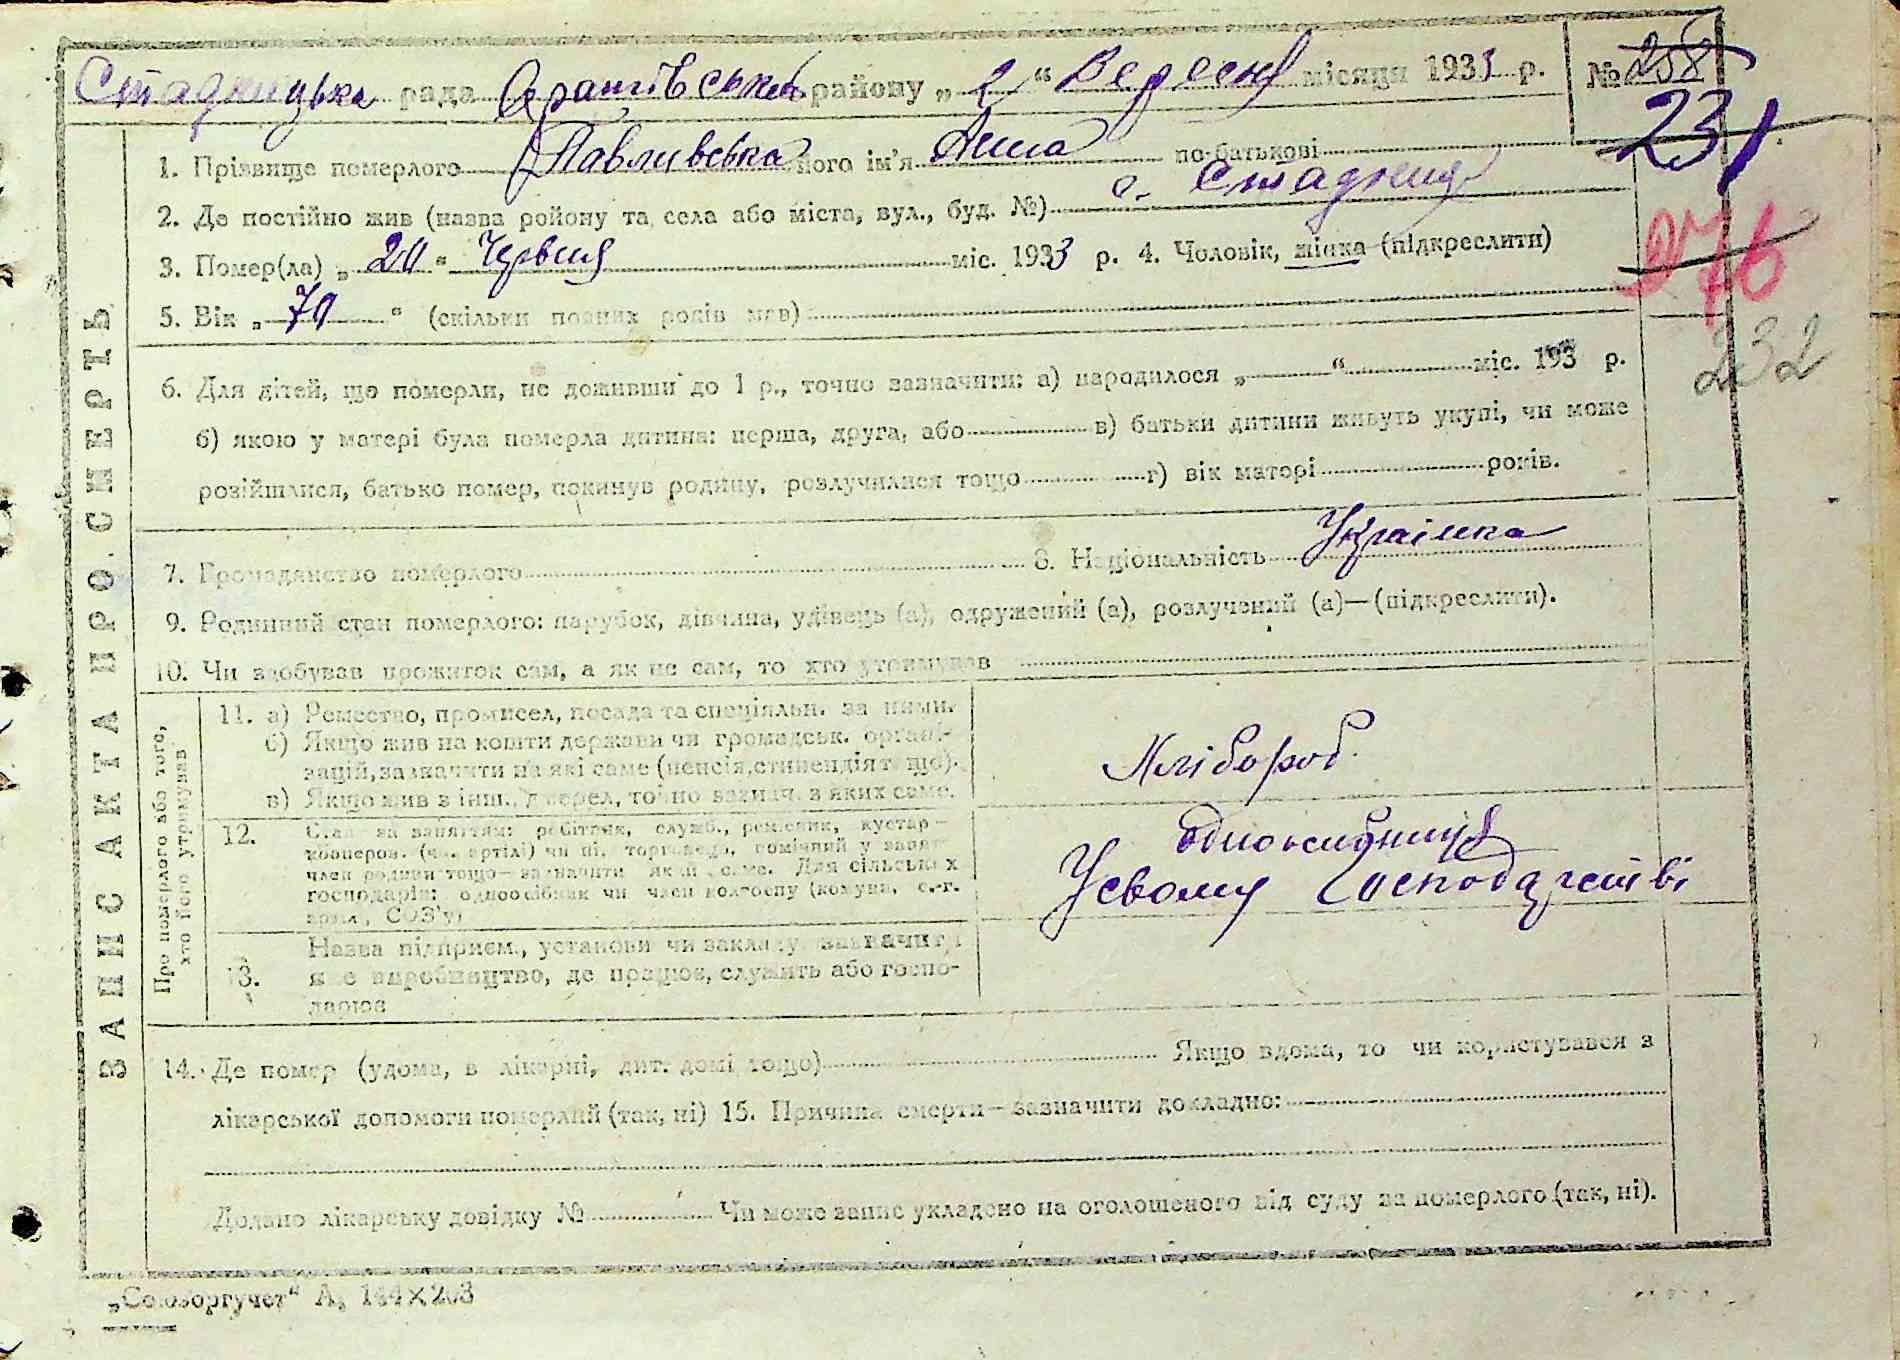 Стадницька рада Оратівського району „ 2 “ Вересня місяця 1933 р. № 258
231
1. Прізвище померлого Павливська його ім'я Анна по-батькові
2. Де постійно жив (назва району та села або міста, вул., буд. №) с. Стадниця
3. Помер(ла) „ 20 “ Червня міс. 1933 р. 4. Чоловік, жінка (підкреслити)
276
5. Вік „ 70 “ (скільки повних років мав)
232
6. Для дітей, що померли, не доживши до 1 р., точно зазначити: а) народилося „ “ міс. 193 р.
б) якою у матері була померла дитина: перша, друга, або в) батьки дитини живуть укупі, чи може
розійшлися, батько помер, покинув родину, розлучилися тощо г) вік матері років.
7. Громадянство померлого 8. Національність Українка
9. Родинний стан померлого: парубок, дівчина, удівець (а), одружений (а), розлучений (а)—(підкреслити).
10. Чи здобував прожиток сам, а як не сам, то хто утримував
ЗАПИС АКТА ПРО СМЕРТЬ
Про померлого або того,
хто його утримував
11. а) Ремество, промисел, посада та спеціяльн. за ними.
б) Якщо жив на кошти держави чи громадськ. органі-
зацій, зазначити на які саме (пенсія, стипендія тощо).
в) Якщо жив з інш. джерел, точно зазнач. з яких саме.
Хлібороб.
12. Стан за заняттям: робітник, служб., ремісник, кустар—
кооперов. (чл. артілі) чи ні, торговець, помічний у занят.
член родини тощо—зазначити який саме. Для сільських
господарів: одноосібник чи член колгоспу (комуни, с.-г.
артіл., СОЗ'у)
одноосибниця
Усвому Господарстві
13. Назва підприєм., установи чи закладу зазначити
яке виробництво, де працює, служить або госпо-
дарює
14. Де помер (удома, в лікарні, дит. домі тощо) Якщо вдома, то чи користувався з
лікарської допомоги померлий (так, ні) 15. Причина смерти—зазначити докладно:
Додано лікарську довідку № Чи може запис укладено на оголошеного від суду за померлого (так, ні).
„Союзоргучет“ А₅ 144×203